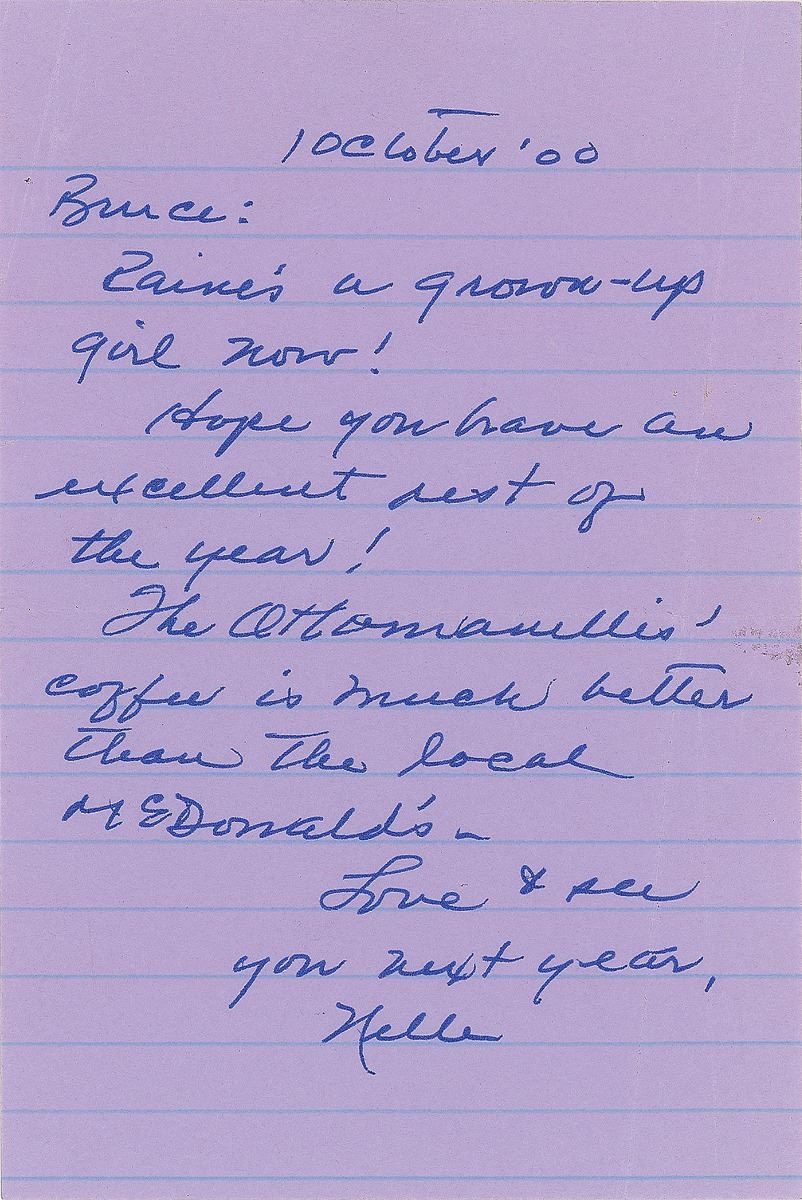 1 October '00
Bruce:
Raine's a grown-up
girl now!
Hope you have an
excellent rest of
the year!
The Ottomanellis'
coffee is much better
than the local
McDonald's –
Love & see
you next year,
Nelle